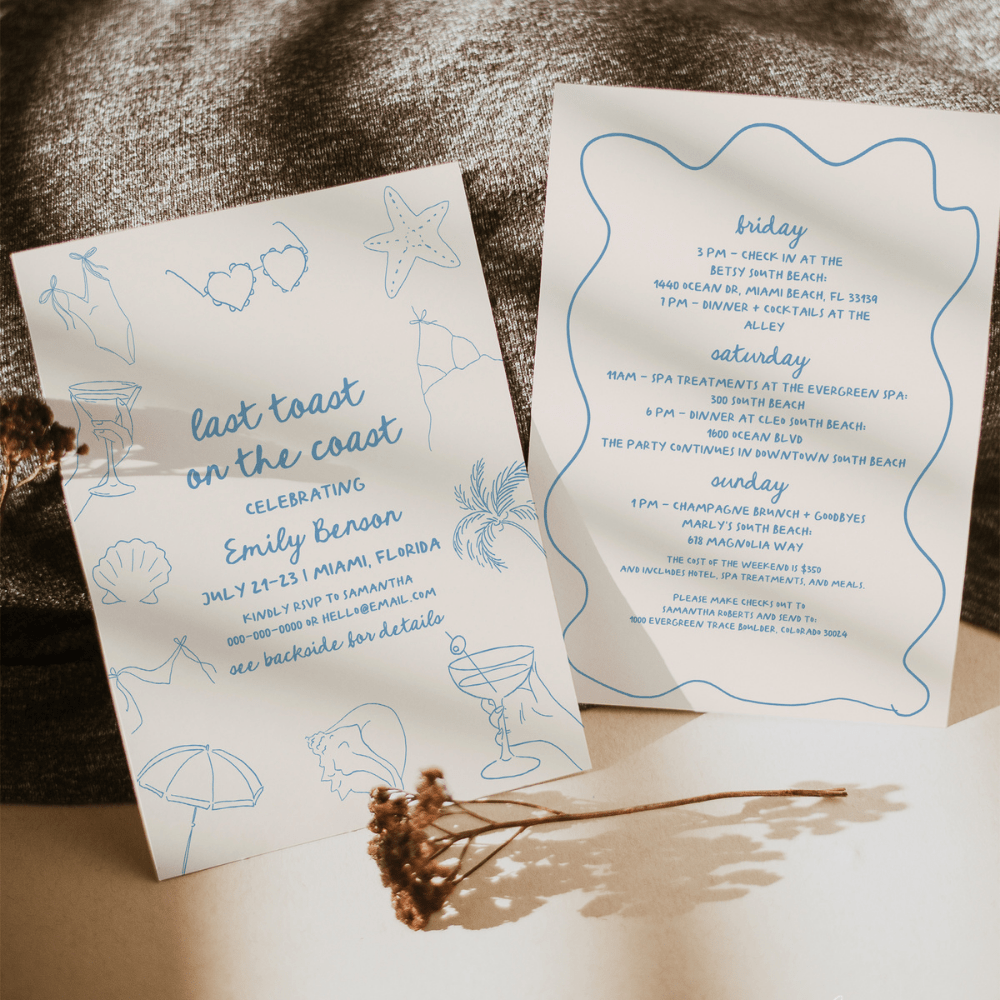 last toast
on the coast
CELEBRATING
Emily Benson
JULY 21-23 | MIAMI, FLORIDA
KINDLY RSVP TO SAMANTHA
000-000-0000 OR HELLO@EMAIL.COM
see backside for details
friday
3 PM - CHECK IN AT THE
BETSY SOUTH BEACH:
1440 OCEAN DR, MIAMI BEACH, FL 33139
7 PM - DINNER + COCKTAILS AT THE
ALLEY
saturday
11AM - SPA TREATMENTS AT THE EVERGREEN SPA:
300 SOUTH BEACH
6 PM - DINNER AT CLEO SOUTH BEACH:
1600 OCEAN BLVD
THE PARTY CONTINUES IN DOWNTOWN SOUTH BEACH
sunday
1 PM - CHAMPAGNE BRUNCH + GOODBYES
MARLY'S SOUTH BEACH:
678 MAGNOLIA WAY
THE COST OF THE WEEKEND IS $350
AND INCLUDES HOTEL, SPA TREATMENTS, AND MEALS.
PLEASE MAKE CHECKS OUT TO
SAMANTHA ROBERTS AND SEND TO:
1000 EVERGREEN TRACE BOULDER, COLORADO 30024